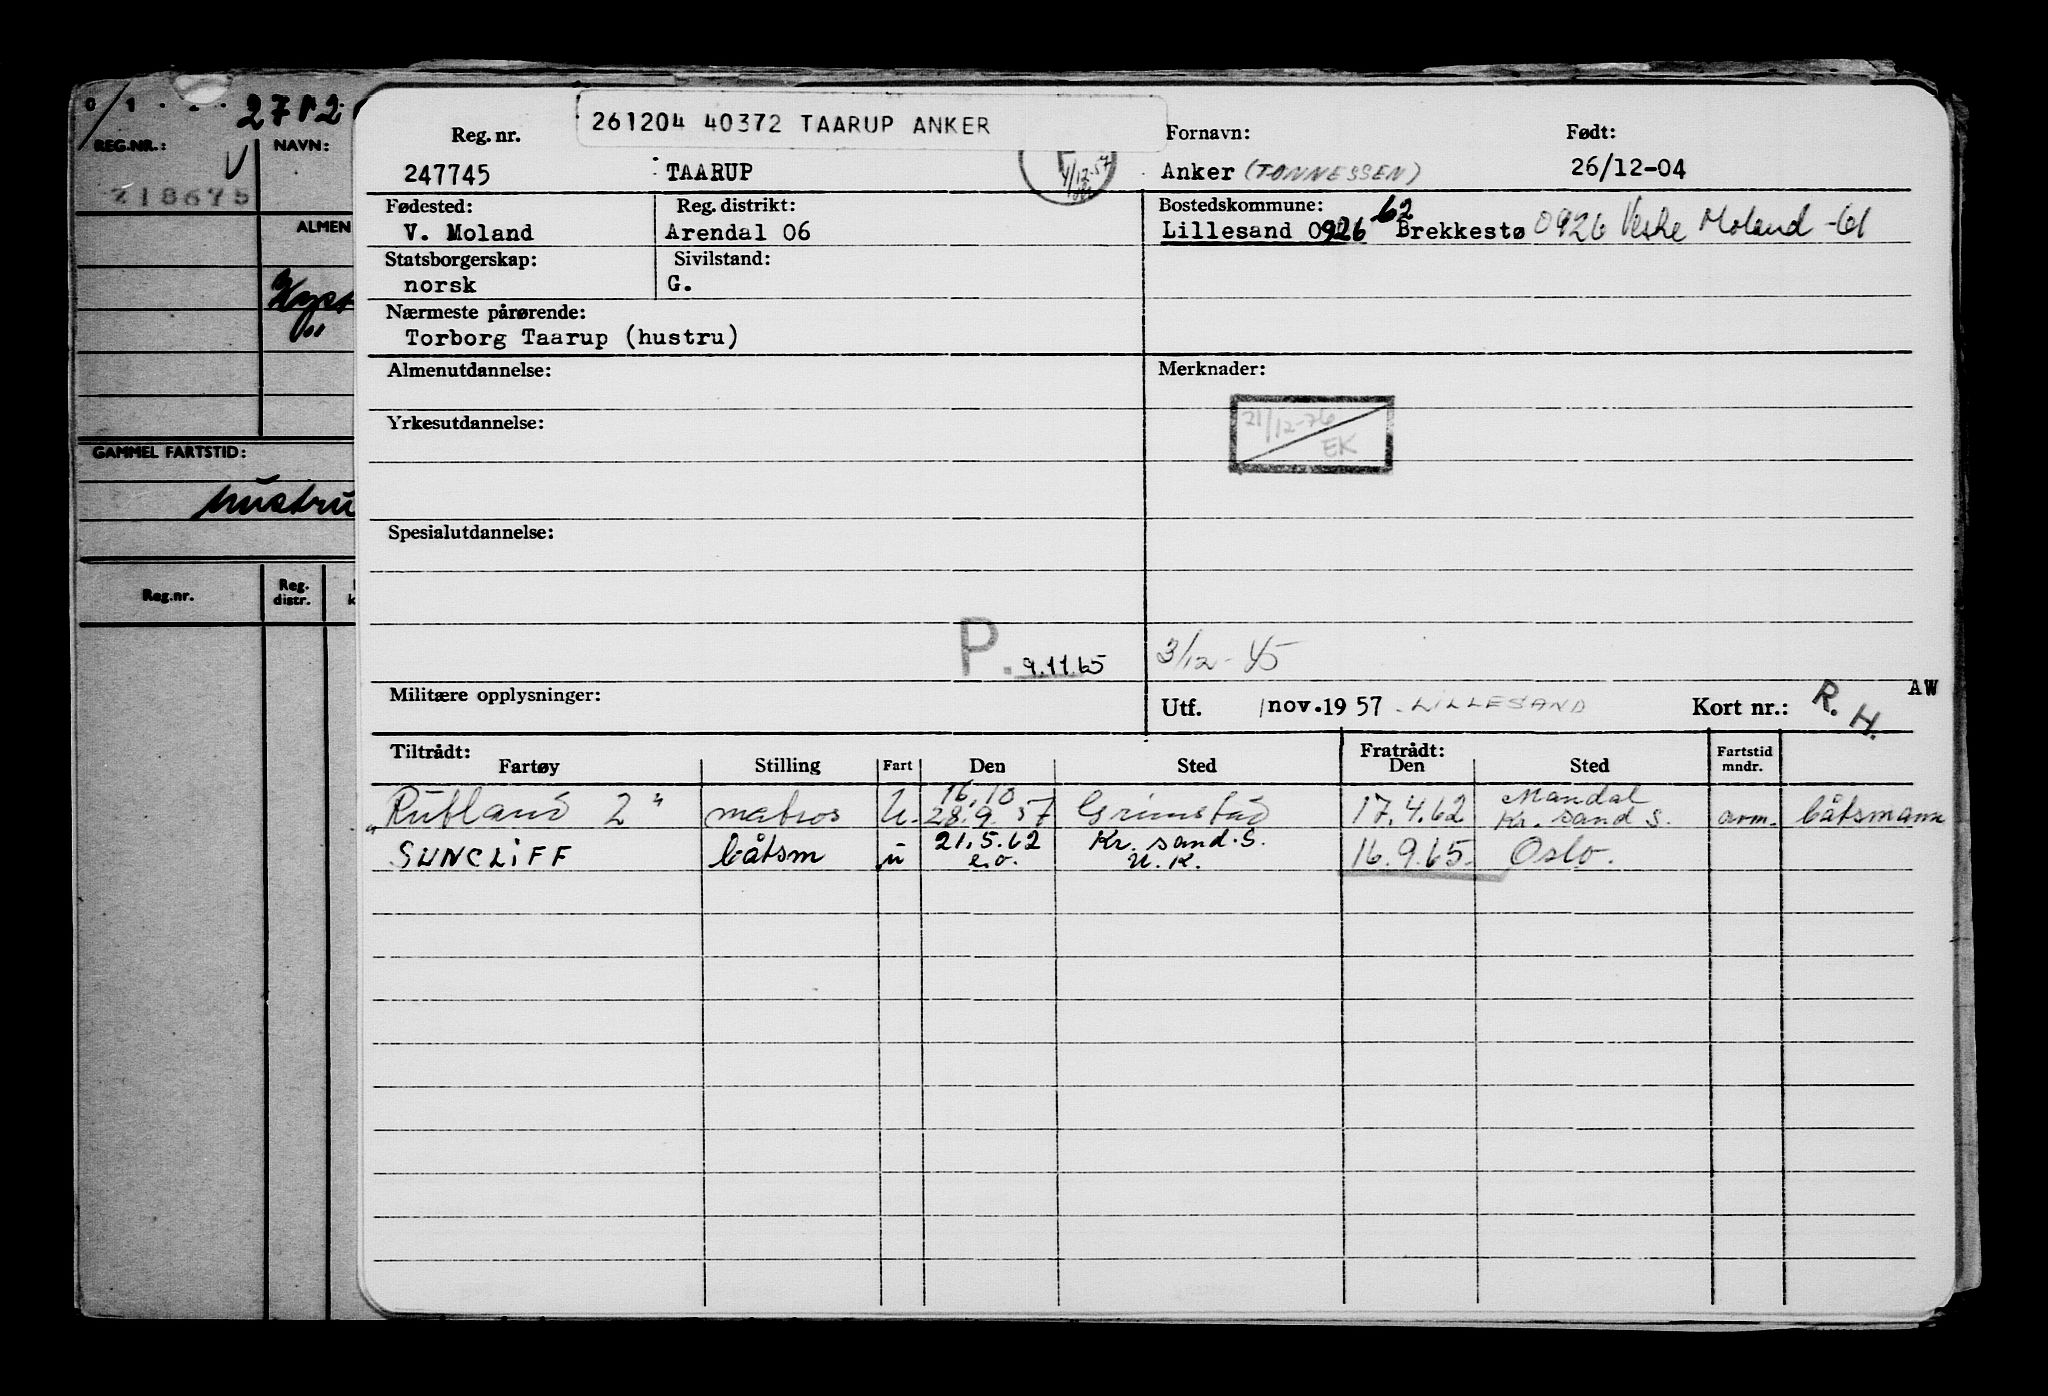 0 1 . . .
2712
REG.NR.:
NAVN:
V
218675
ALMEN
GAMMEL FARTSTID:
hustru
Reg.nr.
Reg. distr.
261204 40372 TAARUP ANKER
Reg. nr.
Fornavn:
Født:
247745
TAARUP
4/12-57
Anker (TØNNESSEN)
26/12-04
Fødested:
Reg. distrikt:
Bostedskommune:
V. Moland
Arendal 06
Lillesand 0926 62 Brekkestø 0926 Vestre Moland -61
Statsborgerskap:
Sivilstand:
norsk
G.
Nærmeste pårørende:
Torborg Taarup (hustru)
Almenutdannelse:
Merknader:
21/12-76
EK
Yrkesutdannelse:
Spesialutdannelse:
P. 9.11.65
3/12-45
Militære opplysninger:
Utf. 1 nov. 19 57 LILLESAND
Kort nr.:
R. H.
AW
Tiltrådt:
Fratrådt:
Fartøy
Stilling
Fart
Den
Sted
Den
Sted
Fartstid mndr.
16.10
Mandal
"Rutland 2" matros U. 28.9.57 Grimstad 17.4.62 Kr. sand S. avm. båtsmann
SUNCLIFF båtsm u 21.5.62 Kr. sand. S. 16.9.65. Oslo.
e.o. U.K.